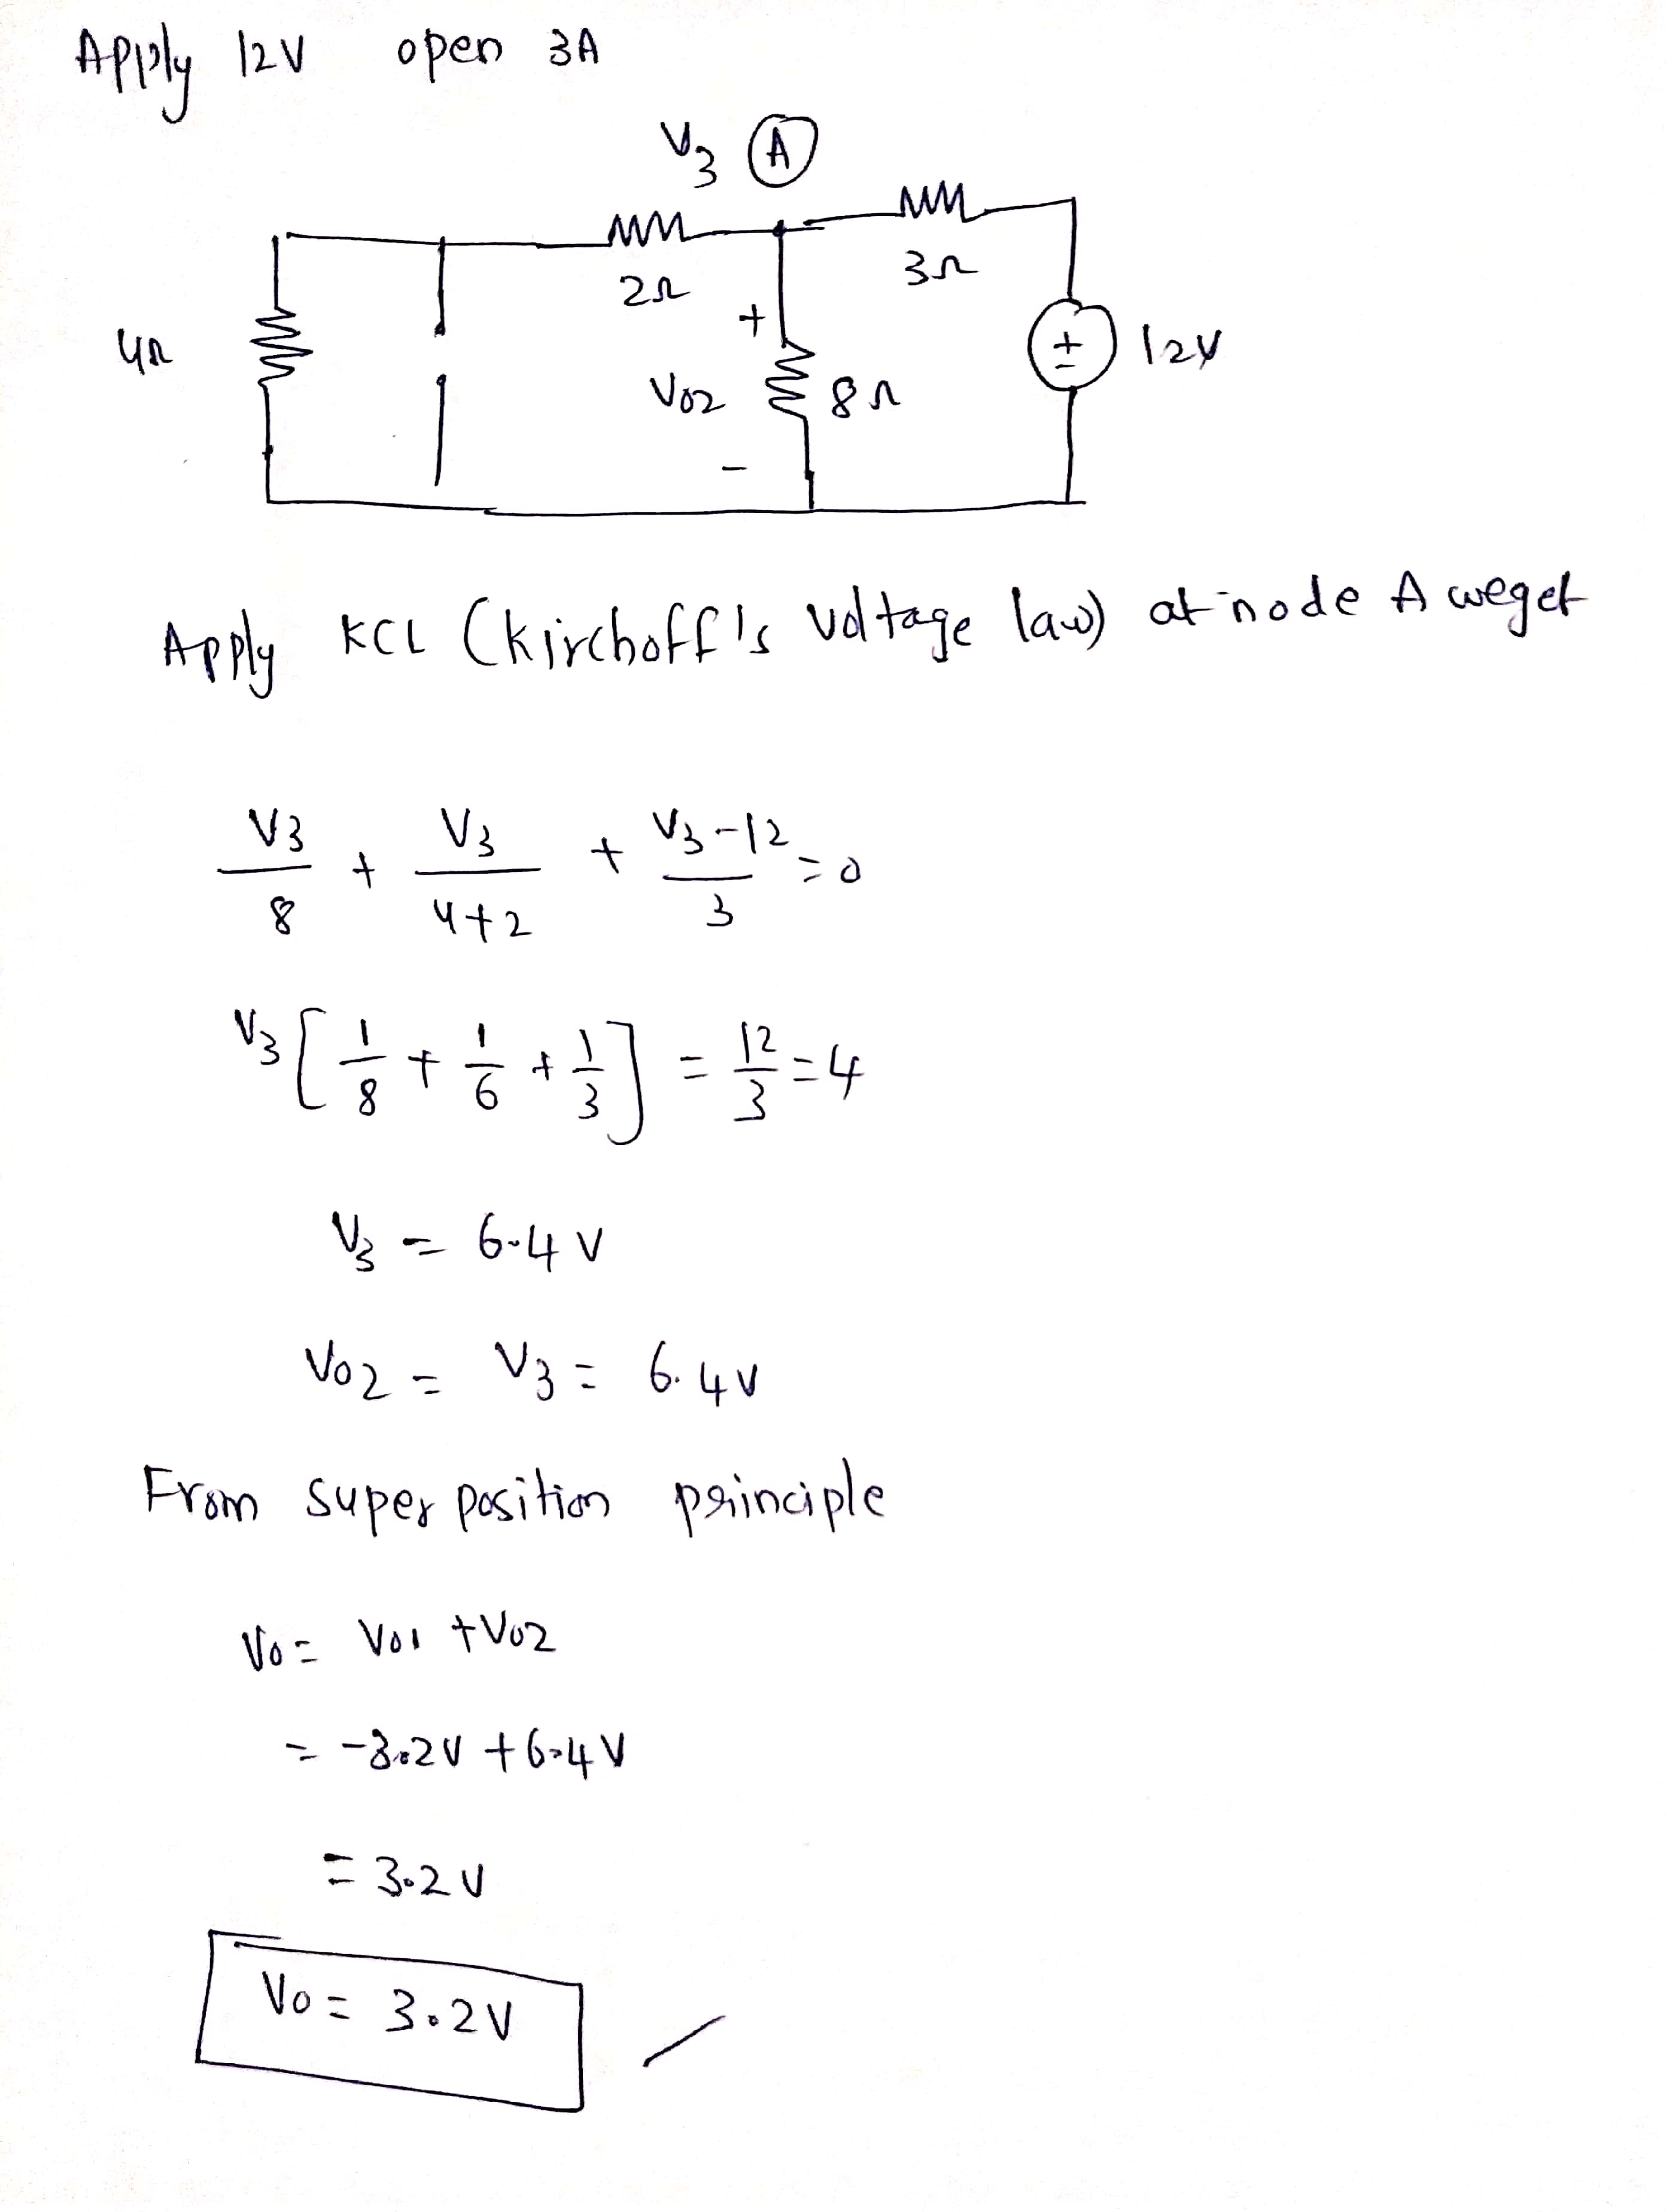 Apply 12V open 3A
V3 A
2Ω
3Ω
4Ω
+
Vo2
8Ω
-
+
-
12V
Apply KCL (Kirchoff's Voltage law) at node A weget
V3/8 + V3/4+2 + V3-12/3 = 0
V3 [1/8 + 1/6 + 1/3] = 12/3 = 4
V3 = 6.4 V
Vo2 = V3 = 6.4V
From super position principle
Vo = Vo1 + Vo2
= -3.2V + 6.4V
= 3.2V
Vo = 3.2V